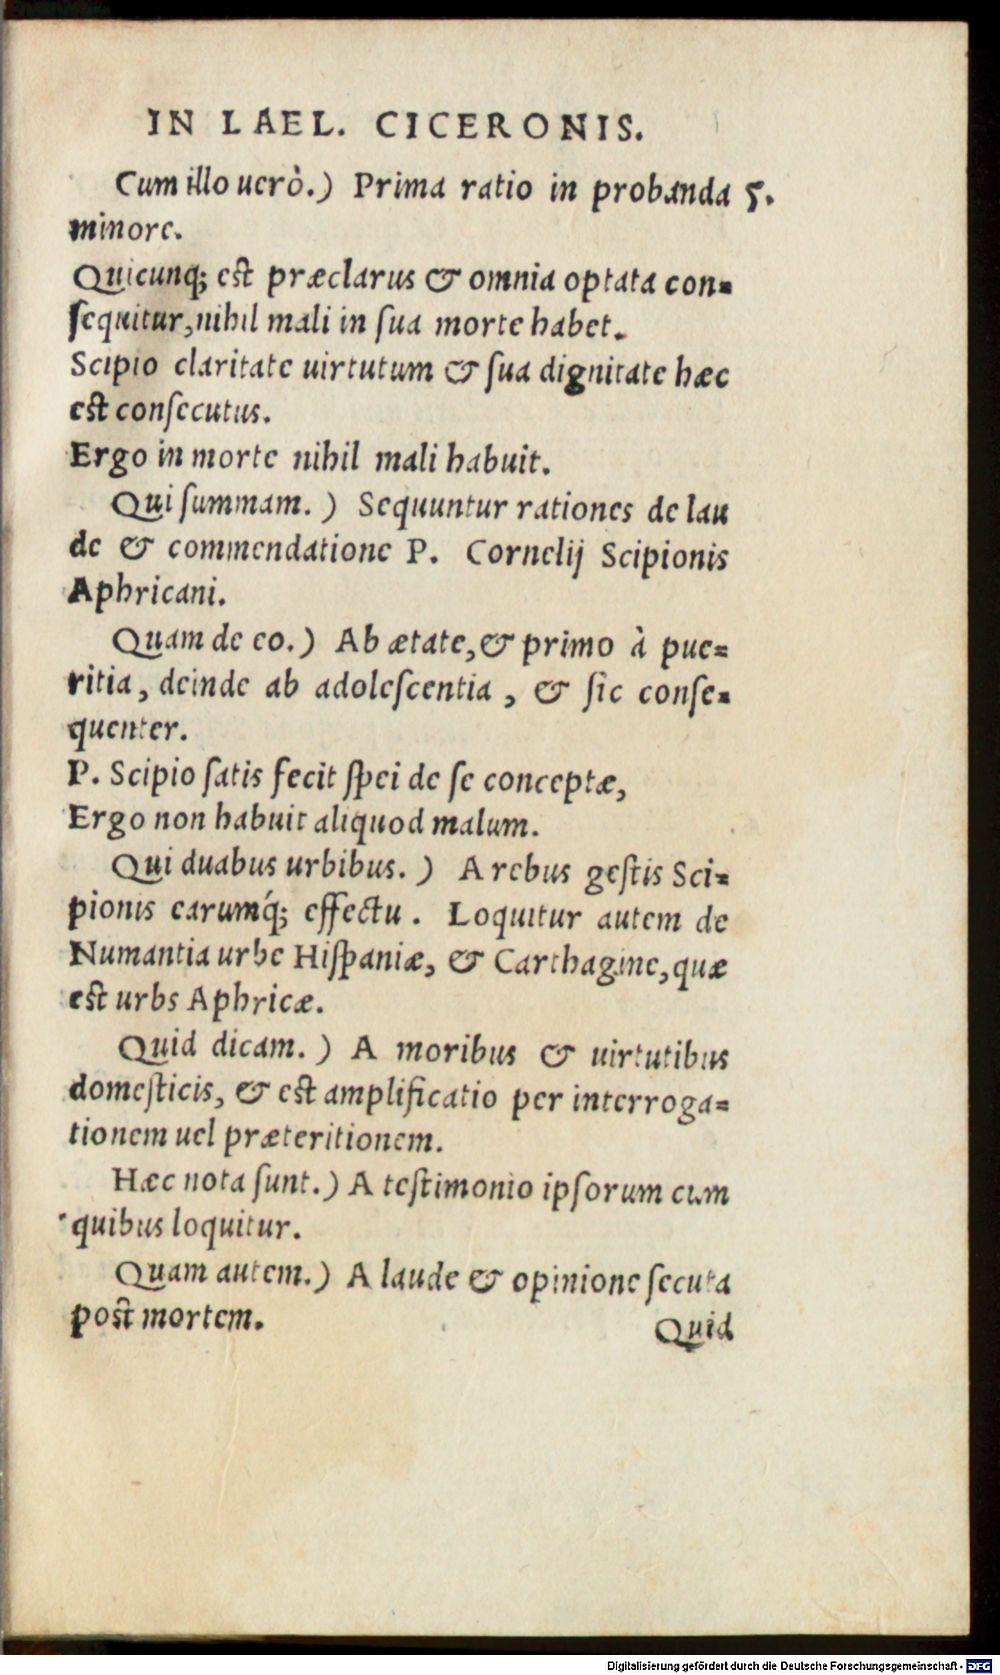 IN LAEL. CICERONIS.
Cum illo uerò.) Prima ratio in probanda 5.
minore.
Quicunq; est præclarus & omnia optata con=
sequitur, nihil mali in sua morte habet.
Scipio claritate uirtutum & sua dignitate hæc
est consecutus.
Ergo in morte nihil mali habuit.
Qui summam.) Sequuntur rationes de lau
de & commendatione P. Cornelij Scipionis
Aphricani.
Quam de eo.) Ab ætate, & primo à pue=
ritia, deinde ab adolescentia, & sic conse=
quenter.
P. Scipio satis fecit spei de se conceptæ,
Ergo non habuit aliquod malum.
Qui duabus urbibus.) A rebus gestis Sci=
pionis earumq́; effectu. Loquitur autem de
Numantia urbe Hispaniæ, & Carthagine, quæ
est urbs Aphricæ.
Quid dicam.) A moribus & uirtutibus
domesticis, & est amplificatio per interroga=
tionem uel præteritionem.
Hæc nota sunt.) A testimonio ipsorum cum
quibus loquitur.
Quam autem.) A laude & opinione secuta
post mortem.
Quid
Digitalisierung gefördert durch die Deutsche Forschungsgemeinschaft - DFG